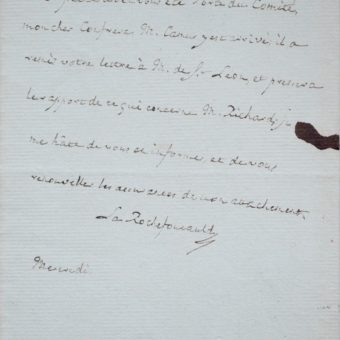 sorti du Comité,
mon cher Confrere M. Camus y est arrivé, il a
remis votre lettre à M. de St Leon, et pressera
le rapport de ce qui concerne M. Richard, je
me hâte de vous en informer et de vous
renouveller les assurances de mon attachement.
La Rochefoucauld
Mercredi